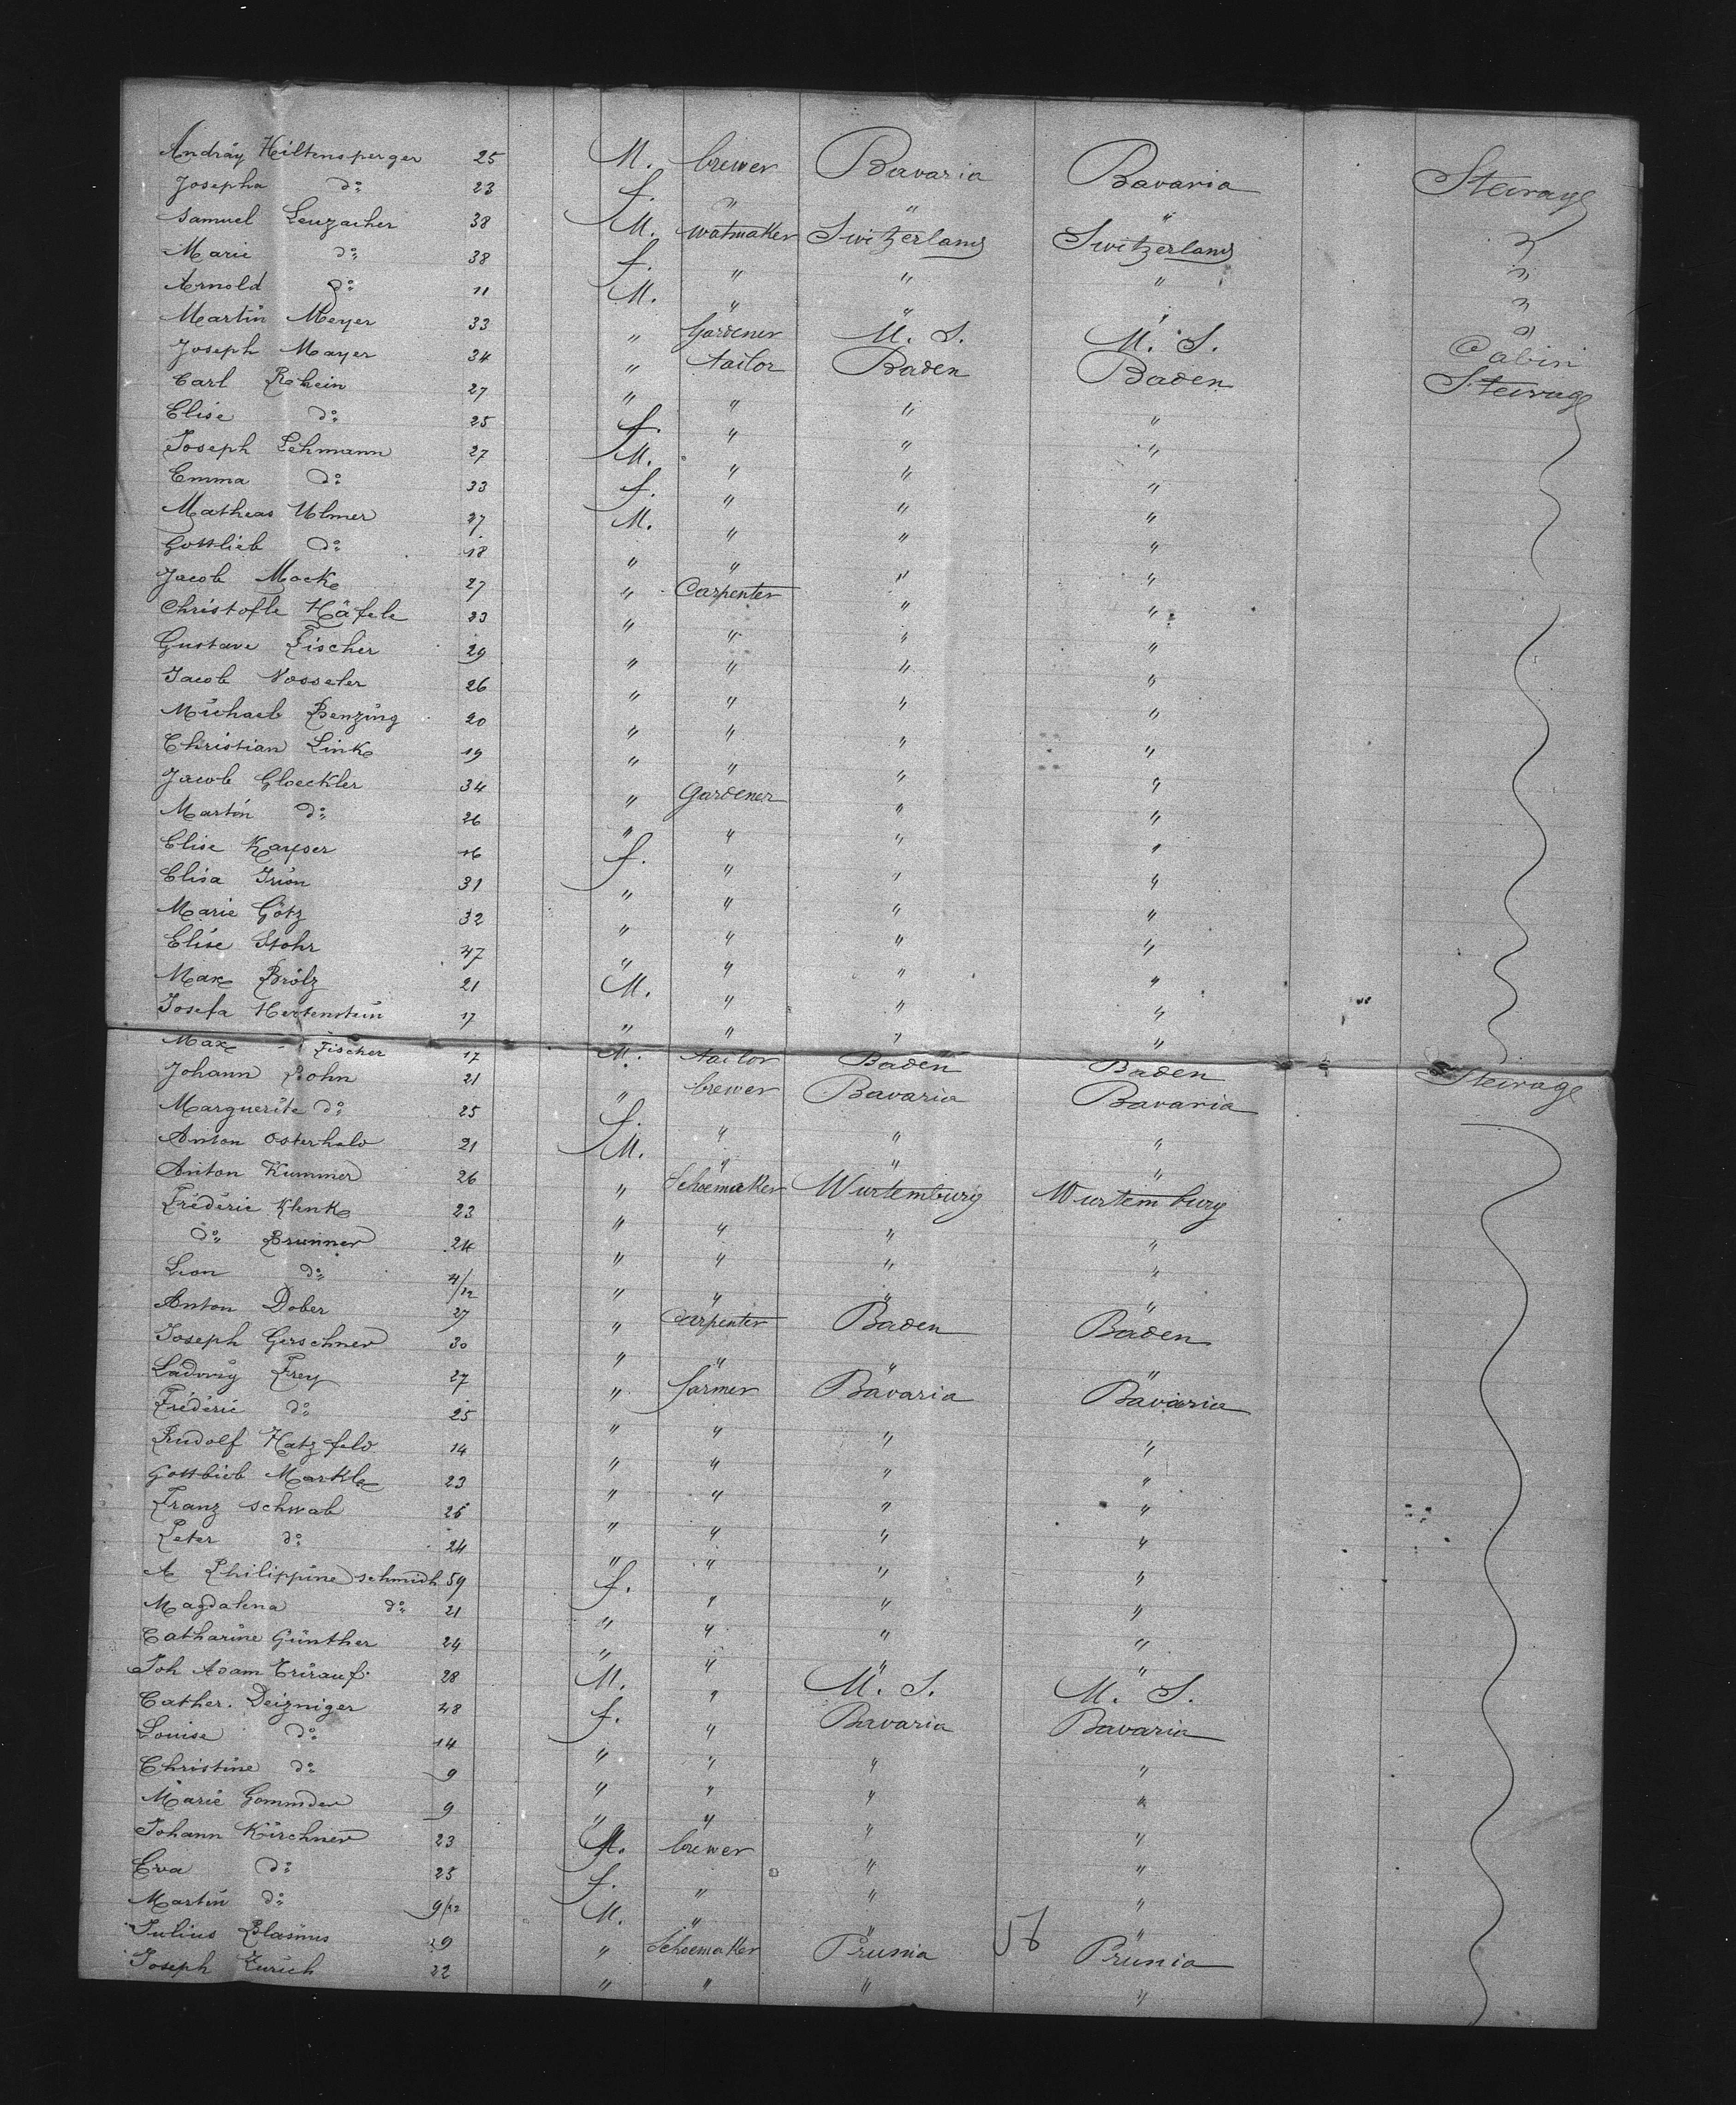 Andräy Hiltensperger 25 M. brewer Bavaria Bavaria Steirage
Josepha do 23 f. " " " "
Samuel Leuzacher 38 M. watmaker Switzerland Switzerland "
Marie do 38 f. " " " "
Arnold do 11 M. " " " "
Martin Meyer 33 " Gardener U. S. U. S. Cabin
Joseph Mayer 34 " tailor Baden Baden Steirage
Carl Rhein 27 " " " "
Elise do 25 f. " " "
Joseph Lehmann 27 M. " " "
Emma do 33 f. " " "
Matheas Ulmer 27 M. " " "
Gottlieb do 18 " " " "
Jacob Mack 27 " Carpenter " "
Christofle Häfele 23 " " " "
Gustave Fischer 29 " " " "
Jacob Vosseler 26 " " " "
Michael Benzing 20 " " " "
Christian Link 19 " " " "
Jacob Gloeckler 34 " Gardener " "
Martin do 26 " " " "
Elise Kayser 16 f. " " "
Elisa Irion 31 " " " "
Marie Götz 32 " " " "
Elise Stohr 47 " " " "
Max Brölz 21 M. " " "
Josefa Hertenstein 17 " " " "
Max Fischer 17 M. tailor Baden Baden Steirage
Johann Bohn 21 " brewer Bavaria Bavaria
Marguerite do 25 f. " " "
Anton Osterhald 21 M. " " "
Anton Kummer 26 " Schoemaker Wurtemburg Wurtemburg
Fréderic Klenk 23 " " " "
do Brunner 24 " " " "
Leon do 4/12 " " " "
Anton Dober 27 " Carpenter Baden Baden
Joseph Gerschner 30 " " " "
Ludwig Frey 27 " farmer Bavaria Bavaria
Fréderic do 25 " " " "
Rudolf Hatzfeld 14 " " " "
Gottlieb Markle 23 " " " "
Franz Schwab 26 " " " "
Peter do 24 " " " "
A Philippine Schmidt 59 f. " " "
Magdalena do 21 " " " "
Catharine Günther 24 " " " "
Joh Adam 28 M. " U. S. U. S.
Cather. Deizniger 48 f. " Bavaria Bavaria
Louise do 14 " " " "
Christine do 9 " " " "
Marie 9 " " " "
Johann Kirchner 23 M. brewer " "
Eva do 25 f. " " "
Martin do 9/12 M. " " "
Julius Blasius 29 " Schoemaker Prussia 56 Prussia
Joseph Zurich 22 " " " "